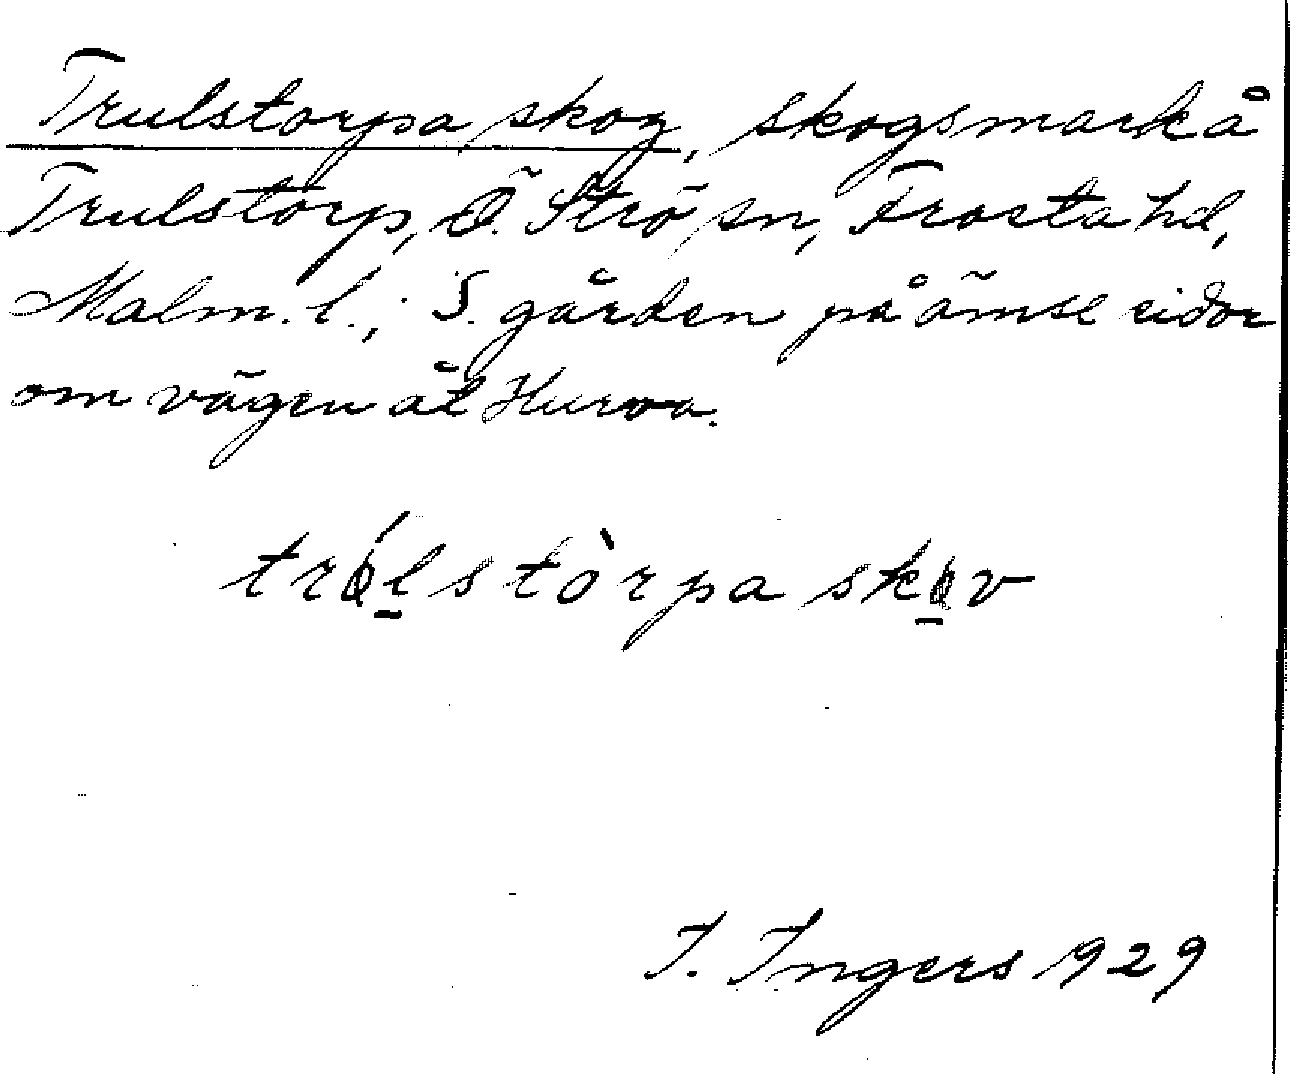 Trulstorpa skog, skogsmark å
Trulstorp, Ö. Strö sn, Frosta hd,
Malm. l.; S. gården på ömse sidor
om vägen åt Hurva.
trǫ́l̲stòrpa skǫ̲v
I. Ingers 1929